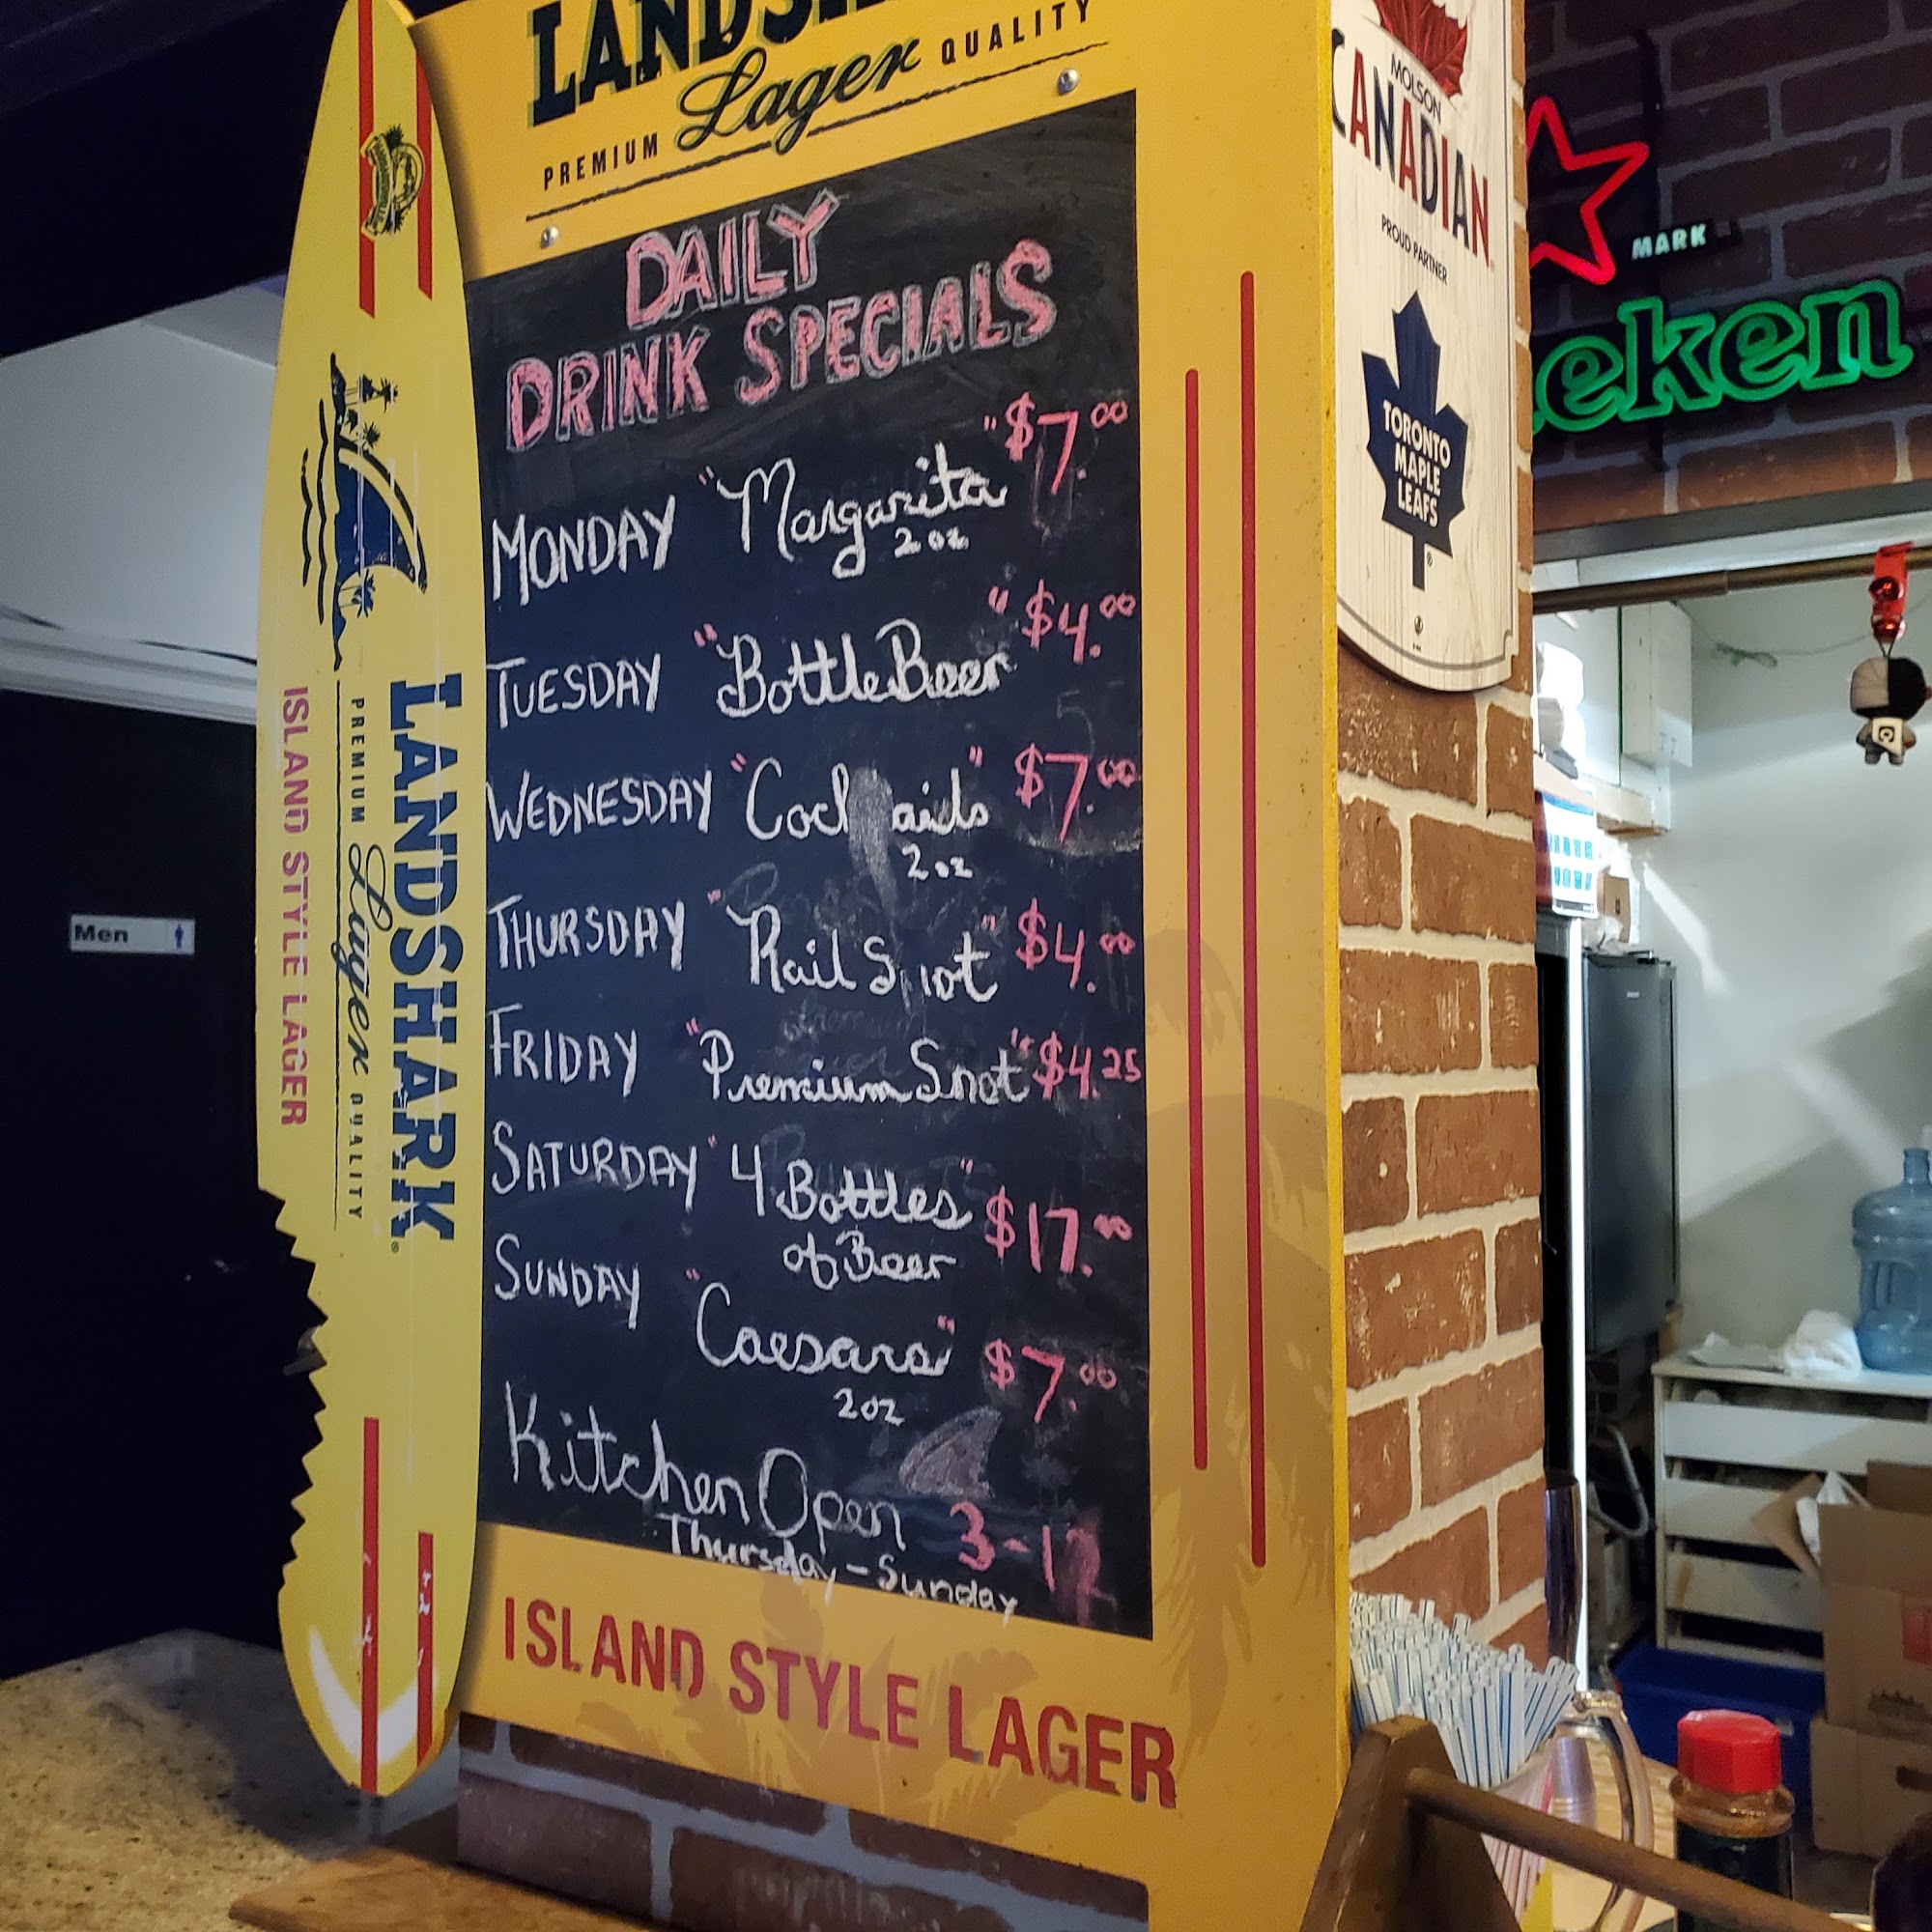 LANDS
PREMIUM Lager QUALITY
DAILY
DRINK SPECIALS
MONDAY "Margarita" $7.00
2 oz
TUESDAY "Bottle Beer" $4.00
WEDNESDAY "Cocktails" $7.00
2 oz
THURSDAY "Rail Shot" $4.00
FRIDAY "Premium Shot" $4.25
SATURDAY "4 Bottles" $17.00
of Beer
SUNDAY "Caesars" $7.00
2 oz
Kitchen Open 3-
Thursday - Sunday
ISLAND STYLE LAGER
LANDSHARK
PREMIUM Lager QUALITY
ISLAND STYLE LAGER
Men
MOLSON
CANADIAN
PROUD PARTNER
TORONTO
MAPLE
LEAFS
MARK
eken